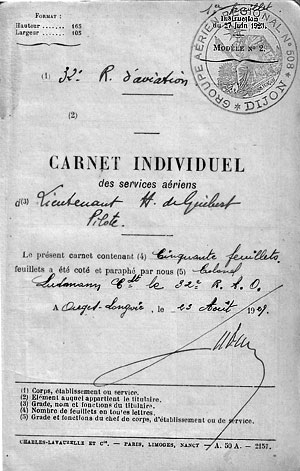 FORMAT :
Hauteur : 165
Largeur : 105
1er feuillet
Instruction
du 27 juin 1923.
MODÈLE N° 2.
GROUPE AÉRIEN RÉGIONAL N° 508
DIJON
(1) 32e R. d'aviation
(2)
CARNET INDIVIDUEL
des services aériens
d(3) Lieutenant H. de Guibert
Pilote.
Le présent carnet contenant (4) Cinquante feuillets,
feuillets a été coté et paraphé par nous (5) Colonel
Cdt le 32e R. A. O.
A Ouges-Longvic, le 23 Août 19
(1) Corps, établissement ou service.
(2) Elément auquel appartient le titulaire.
(3) Grade, nom et fonctions du titulaire.
(4) Nombre de feuillets en toutes lettres.
(5) Grade et fonctions du chef de corps, d'établissement ou de service.
CHARLES-LAVAUZELLE ET Cie. — PARIS, LIMOGES, NANCY — A. 50 A. — 2157.